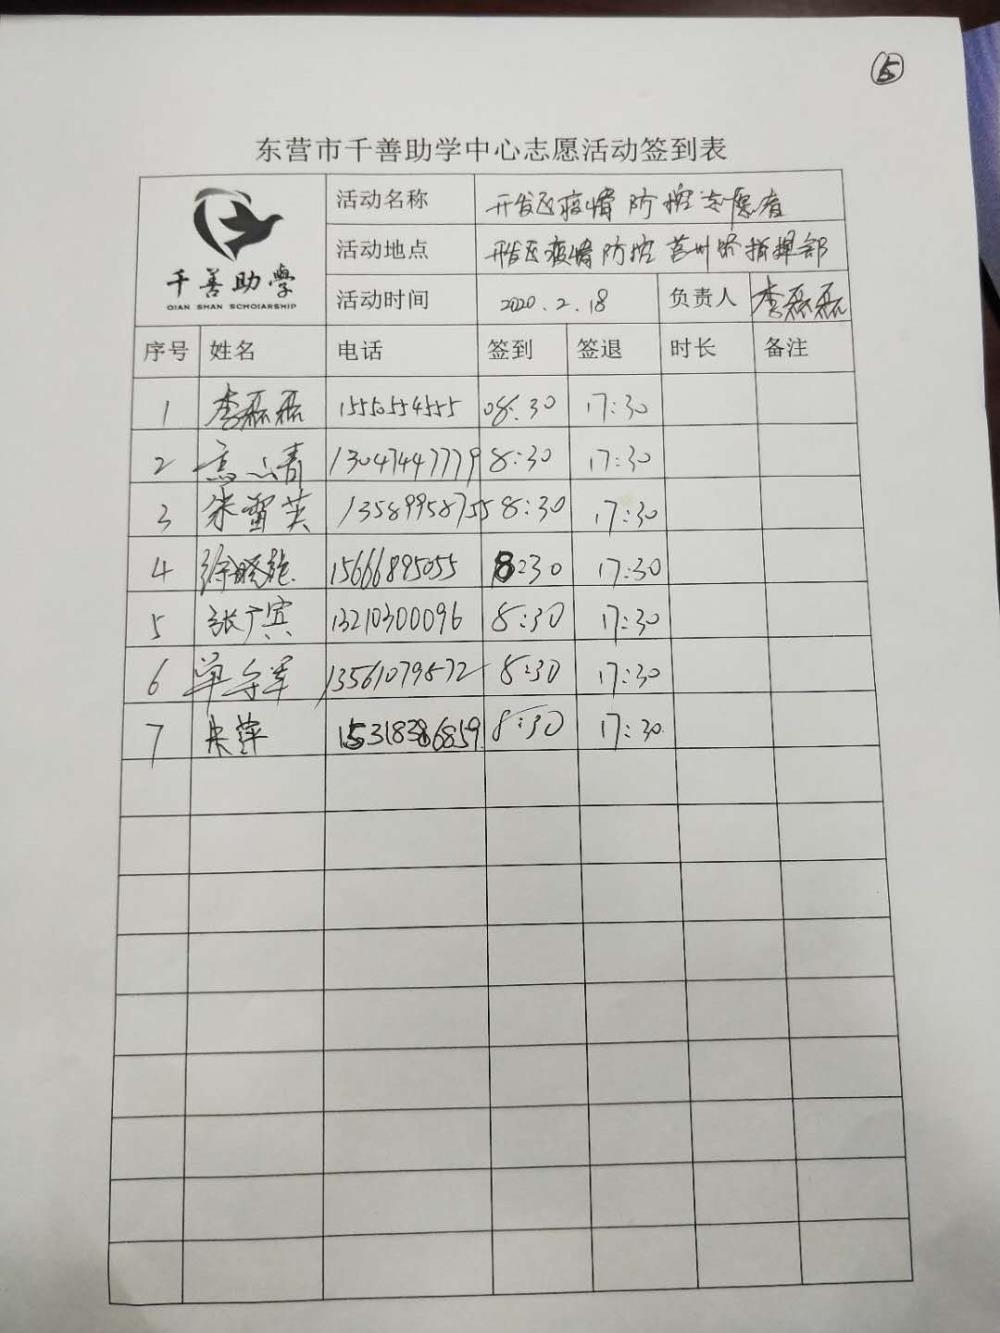 ⑤
东营市千善助学中心志愿活动签到表
千善助學
QIAN SHAN SCHOLARSHIP
活动名称 开发区疫情防控志愿者
活动地点 开发区疫情防控莒州路指挥部
活动时间 2020.2.18 负责人 李磊磊
序号 姓名 电话 签到 签退 时长 备注
1 李磊磊 15505554555 08:30 17:30
2 高心青 13047447779 8:30 17:30
3 朱雪英 13589958755 8:30 17:30
4 徐晓艳 15666895055 8:30 17:30
5 张广宾 13210300096 8:30 17:30
6 单会军 13561079872 8:30 17:30
7 萍 15318386859 8:30 17:30